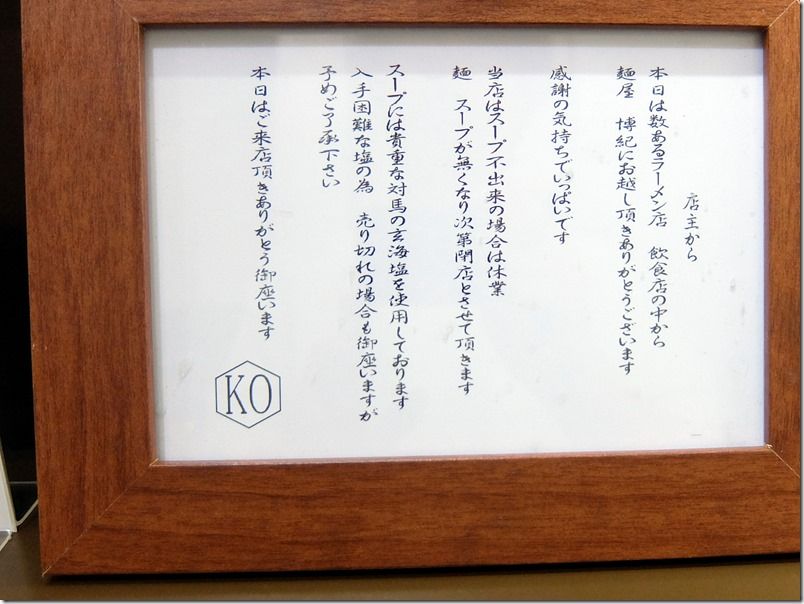 店主から
本日は数あるラーメン店　飲食店の中から
麺屋　博紀にお越し頂きありがとうございます
感謝の気持ちでいっぱいです
当店はスープ不出来の場合は休業
麺　スープが無くなり次第閉店とさせて頂きます
スープには貴重な対馬の玄海塩を使用しております
入手困難な塩の為　売り切れの場合も御座いますが
予めご了承下さい
本日はご来店頂きありがとう御座います
KO